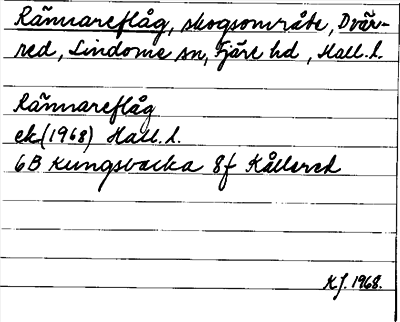 Rännareflåg, skogsområde, Dvär-
red, Lindome sn, Fjäre hd, Hall. l.
Rännareflåg
ek (1968) Hall. l.
6B Kungsbacka 8f Kållered
KJ. 1968.